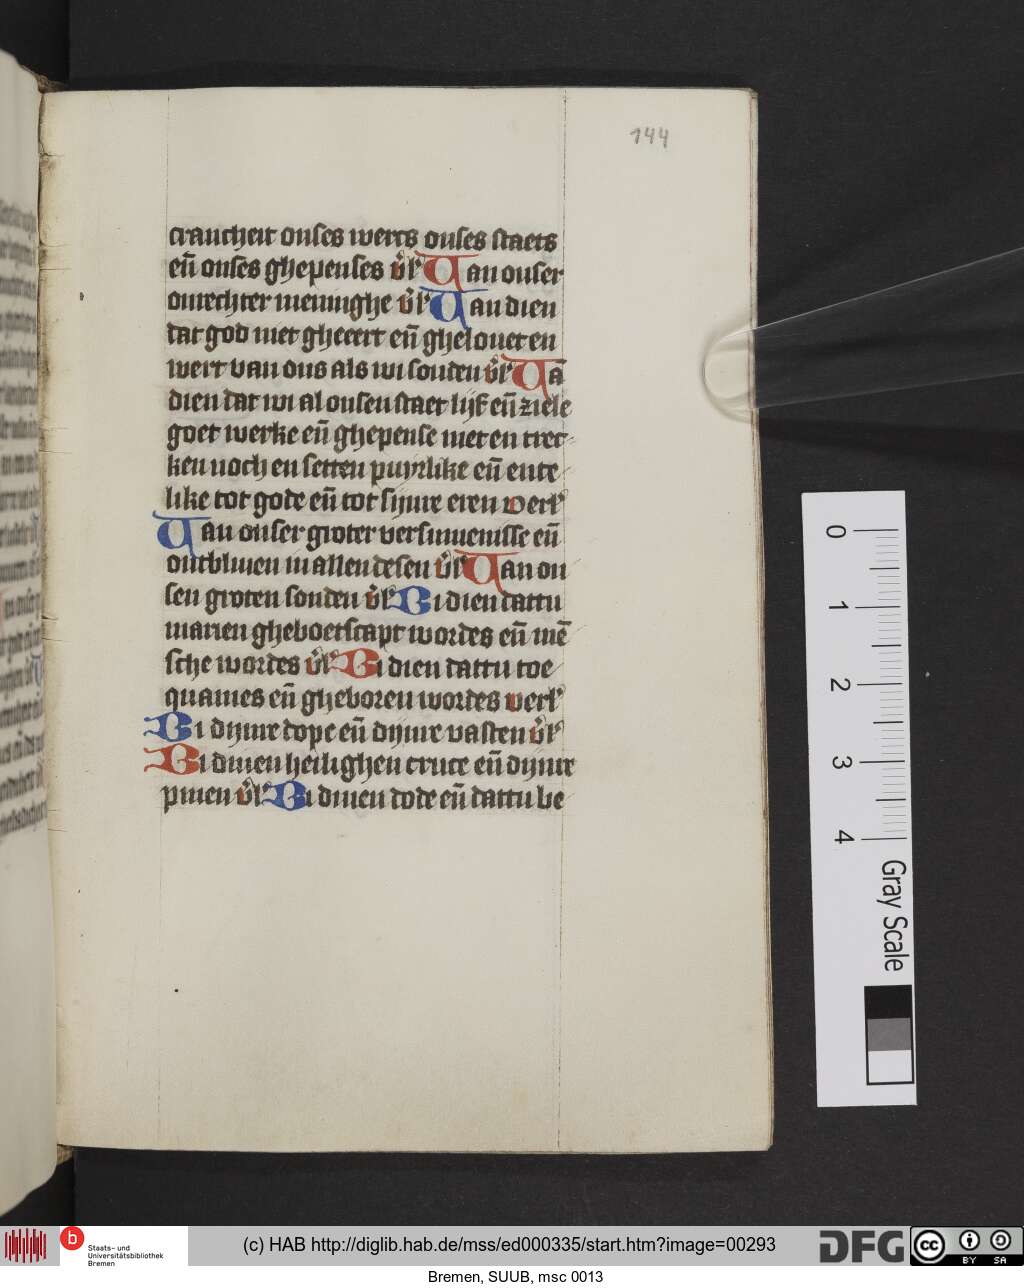 144
traucheit onses wercs onses staets
eñ onses ghepenses v̾l' Uan onser
onrechter meninghe v̾l' Uan dien
dat god niet gheeert eñ ghelouet en
wert van ons als wi souden v̾l' Uã
dien dat wi al onsen staet lijf eñ ziele
goet werke eñ ghepense niet en trec-
ken noch en setten puyrlike eñ ente
like tot gode eñ tot sijnre eren verl'
Uan onser groter versumenisse eñ
ontbliuen in allen desen v̾l' Uan on
sen groten sonden v̾l' Bi dien dattu
marien gheboetscapt wordes eñ mẽ
sche wordes v̾l' Bi dien dattu toe
quames eñ gheboren wordes verl'
Bi dijnre dope eñ dijnre vasten v̾l'
Bi dinen heilighen cruce eñ dijnre
pinen v̾l' Bi dinen dode eñ dattu be
0
1
2
3
4
Gray Scale
b
Staats- und
Universitätsbibliothek
Bremen
(c) HAB http://diglib.hab.de/mss/ed000335/start.htm?image=00293
DFG
cc
BY SA
Bremen, SUUB, msc 0013